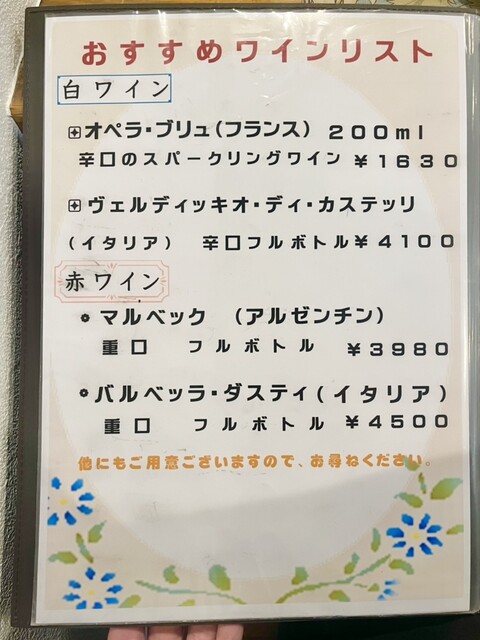 おすすめワインリスト
白ワイン
オペラ・ブリュ(フランス) 200ml
辛口のスパークリングワイン ¥1630
ヴェルディッキオ・ディ・カステッリ
(イタリア) 辛口フルボトル¥4100
赤ワイン
マルベック (アルゼンチン)
重口 フルボトル ¥3980
バルベッラ・ダスティ(イタリア)
重口 フルボトル ¥4500
他にもご用意ございますので、お尋ねください。